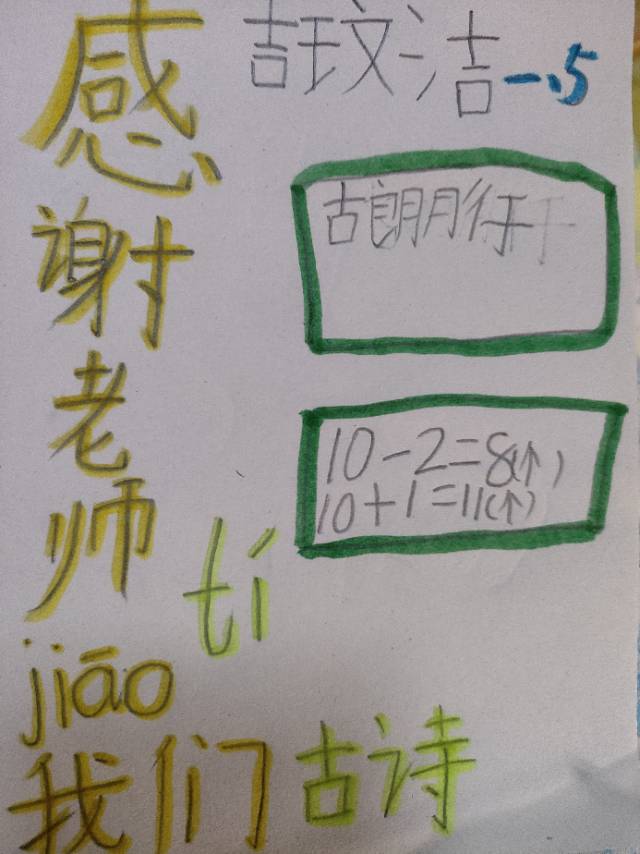 吉玟洁 一.5
感谢老师
古朗月行
10-2=8(个)
10+1=11(个)
tí
jiāo
我们古诗